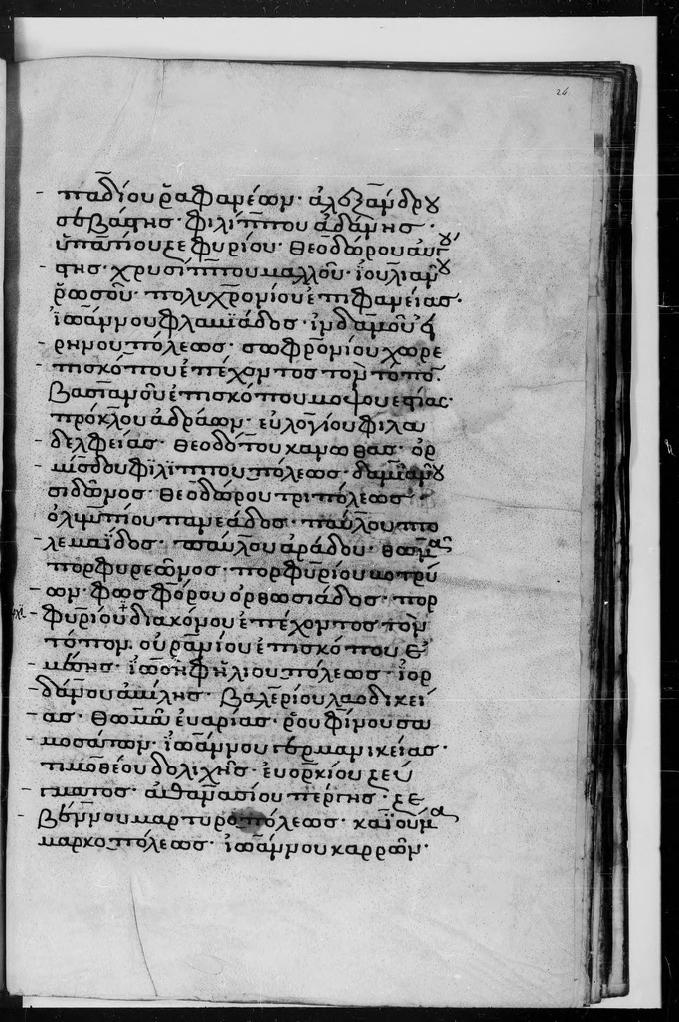 24
παδίου ῥαφανέων· ἀλεξάνδρου
σεβάστης· φιλίππου ἀδάνης·
ὑπατίου ζεφυρίου· θεοδώρου αὐγού
στης· χρυσίππου μαλλοῦ· ἰουλιανοῦ
ῥωσοῦ· πολυχρονίου ἐπιφανείας·
ἰωάννου φλανϊάδος· ἰνδαμοῦ
ρηνουπόλεως· σωφρονίου χωρε
πισκόπου ἐπέχοντος τὸν τόπον
βασιανοῦ ἐπισκόπου μοψουεστίας·
πρόκλου ἀδράων· εὐλογίου φιλα
δελφείας· θεοδότου κανωθας· ὁρ
μίσδου φιλιππουπόλεως· δαμιανοῦ
σιδῶνος· θεοδώρου τριπόλεως·
ὀλυμπίου πανεάδος· παύλου πτο
λεμαΐδος· παύλου ἀράδου· θωμᾶ
πορφυρεῶνος· πορφυρίου βοτρύ
ων· φωσφόρου ὀρθωσιάδος· πορ
φυρίου διακόνου ἐπέχοντος τὸν
τόπον οὐρανίου ἐπισκόπου ἐ
μέσης· ἰωσὴφ ἡλιουπόλεως· ἰορ
δάνου ἀβίλης· βαλερίου λαοδικεί
ας· θωμᾶ ἐυαρίας· ῥουφίνου σα
μοσάτων· ἰωάννου γερμανικείας·
τιμοθέου δολιχῆς· ἐυολκίου ζεύ
γματος· ἀθανασίου πέρρης· ζε
βέννου μαρτυροπόλεως· καϊουμᾶ
μαρκοπόλεως· ἰωάννου καρρῶν·